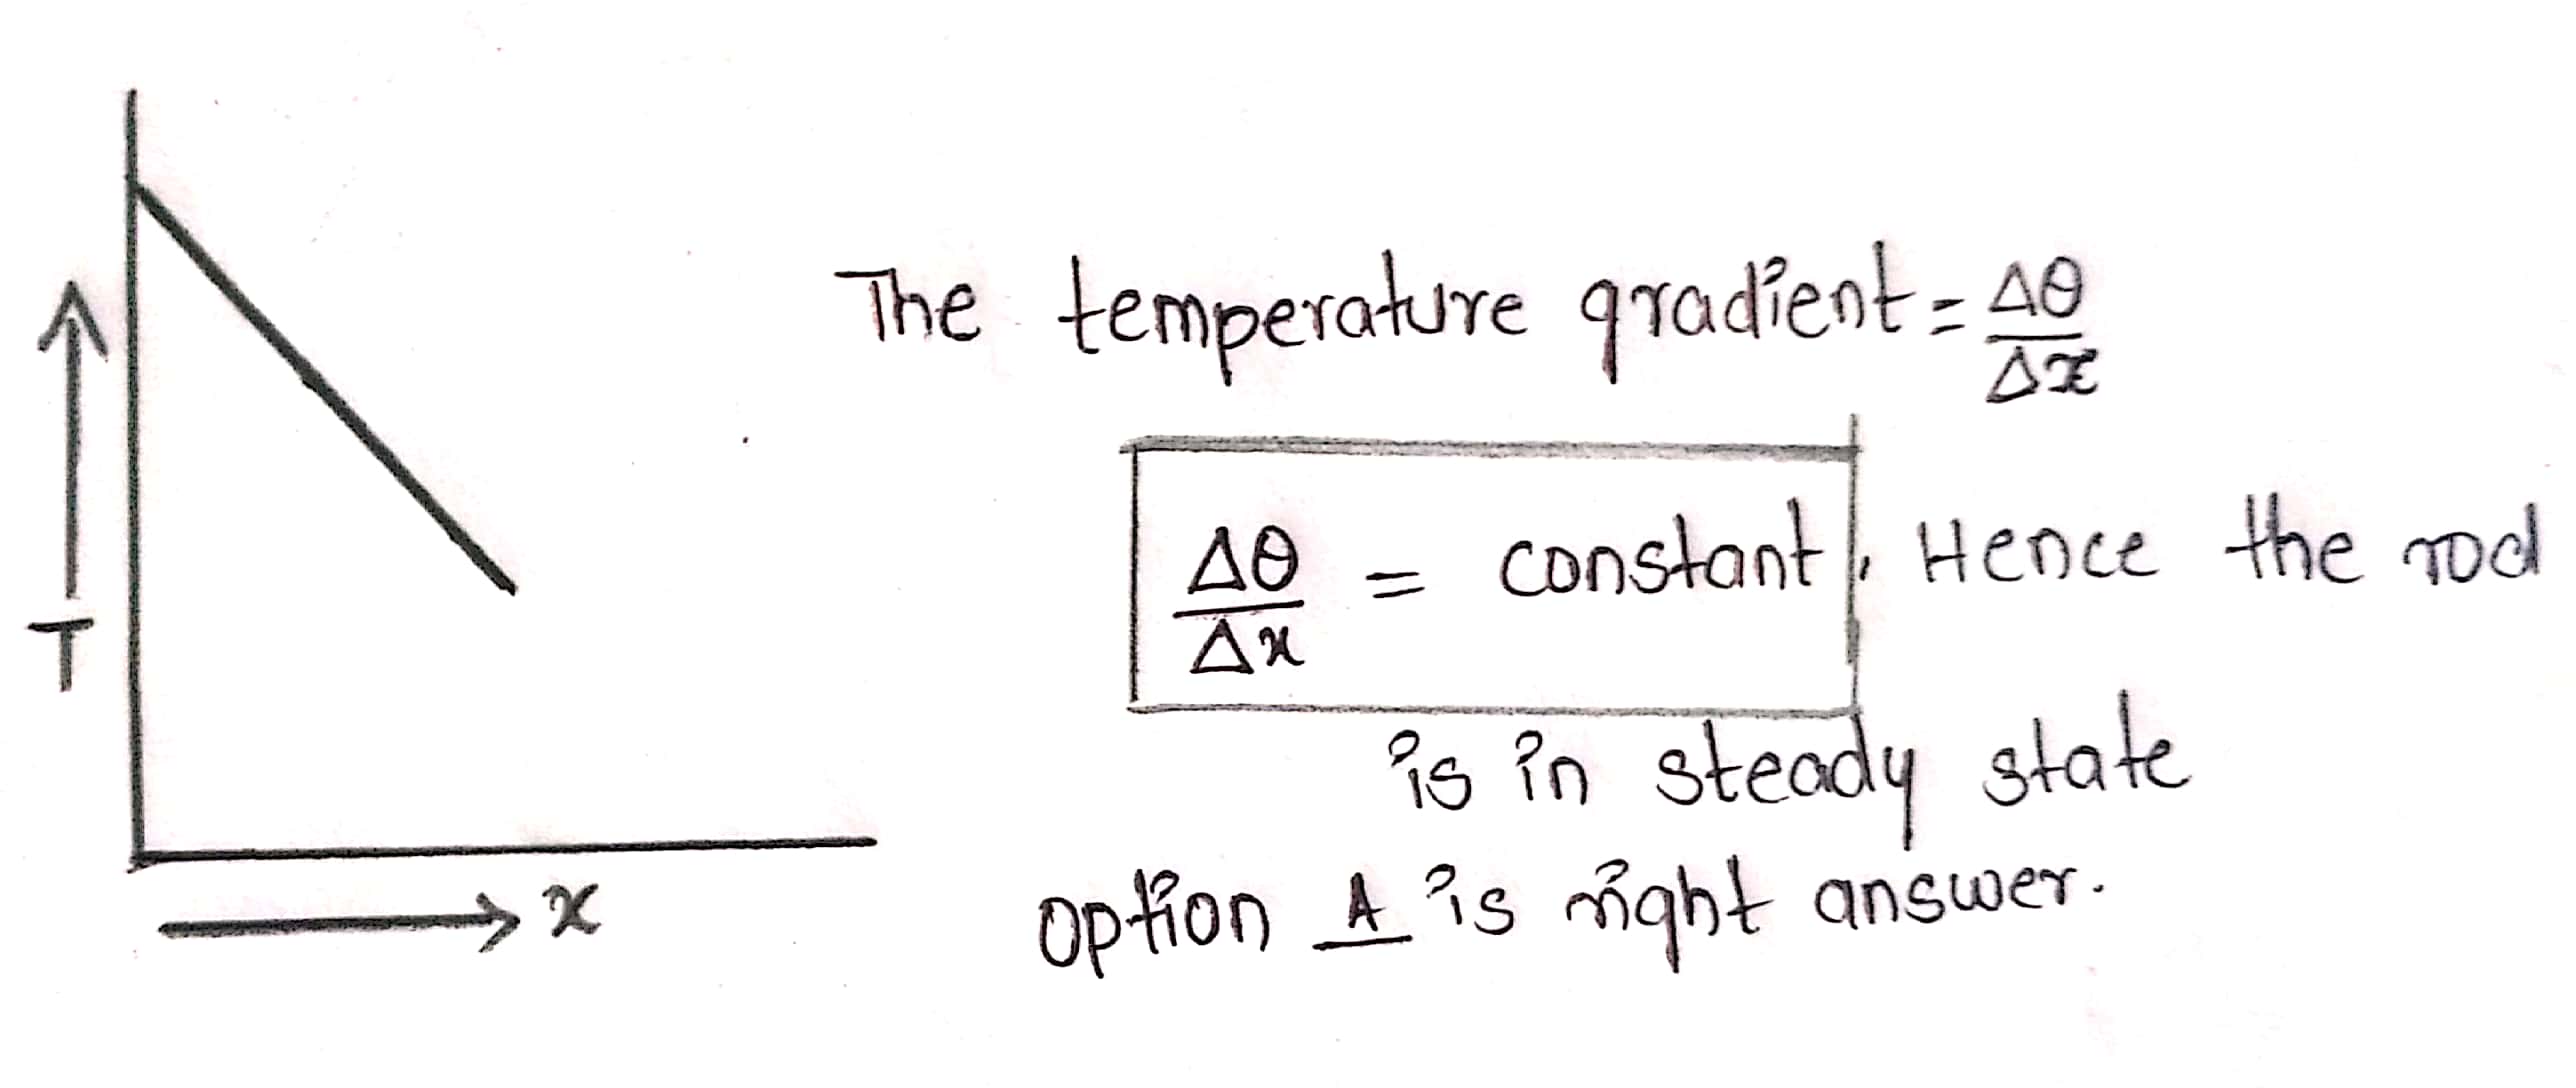 T
x
The temperature gradient = Δθ/Δx
Δθ/Δx = constant, Hence the rod
is in steady state
option A is right answer.